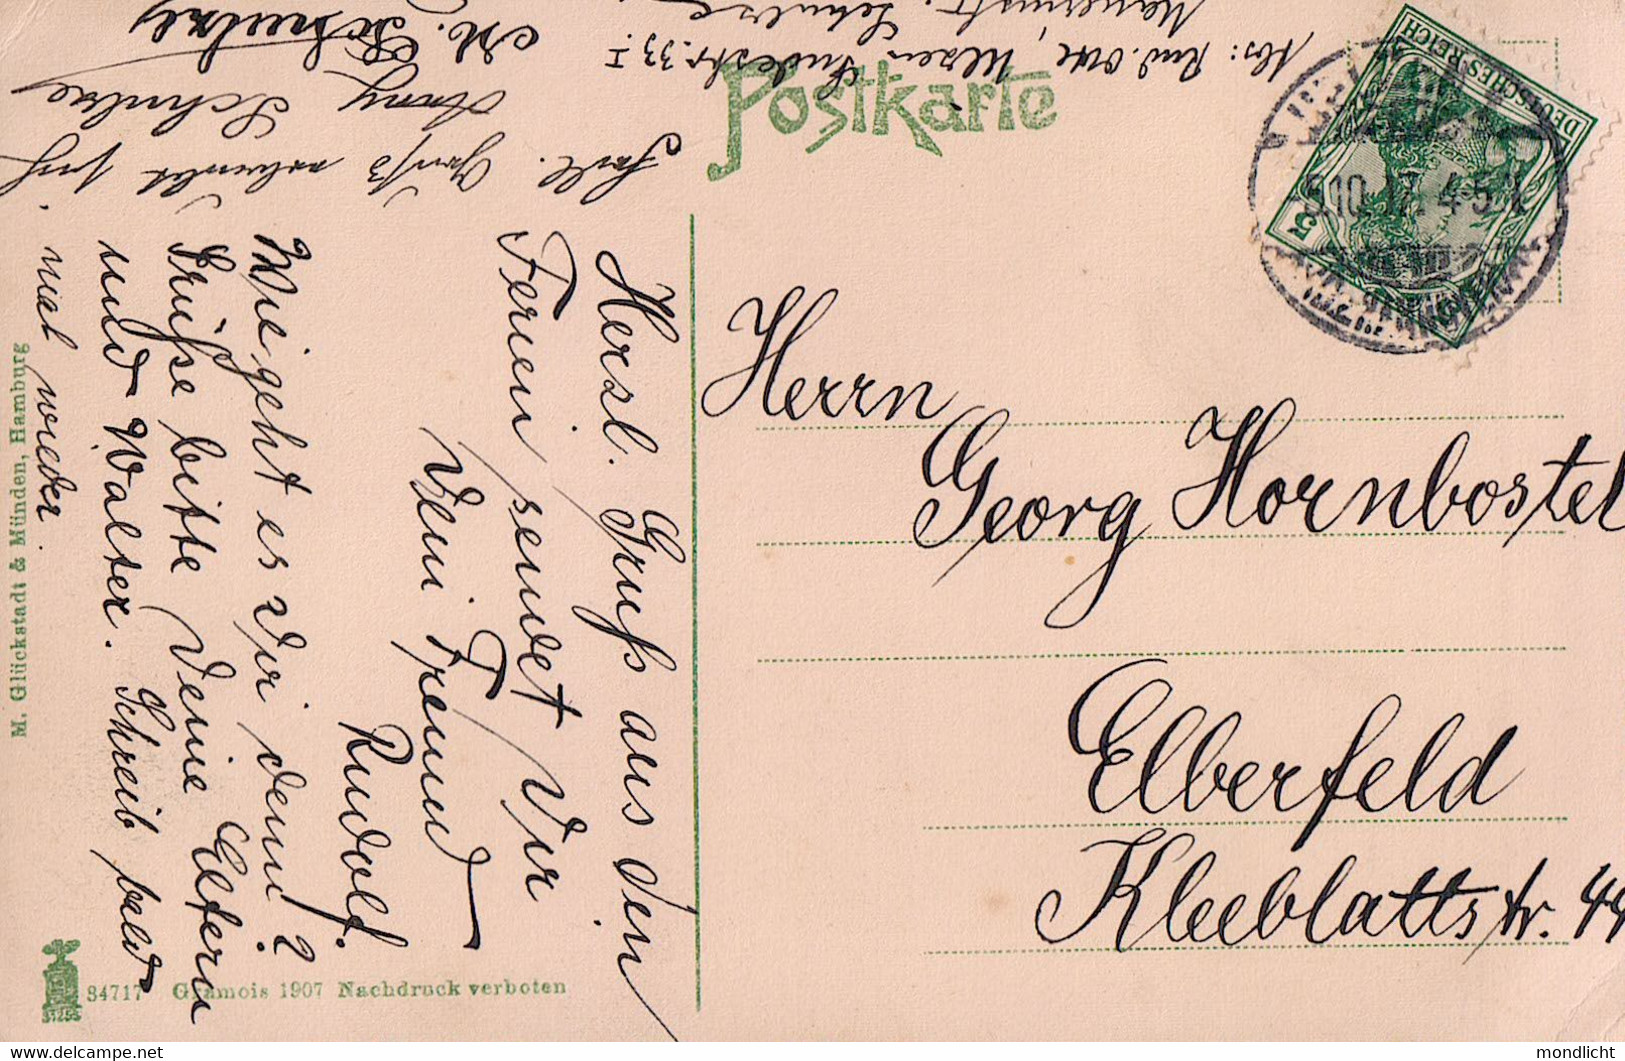 Postkarte
DEUTSCHES REICH
5
5.10.17. 4-5 N
Herrn
Georg Hornbostel
Elberfeld
Kleeblattstr. 44
Herzl. Gruß aus den
Ferien sendet Dir
Dein Freund
Rudolf.
Wie geht es Dir denn?
Grüße bitte Deine Eltern
und Walter. Schreib bald
mal wieder.
Frdl. Gruß
Anny Schulze
M. Schulze
Abs: Rud. Otte, Uelzen
M. Glückstadt & Münden, Hamburg
34717 Gramois 1907 Nachdruck verboten
mondlicht
www.delcampe.net